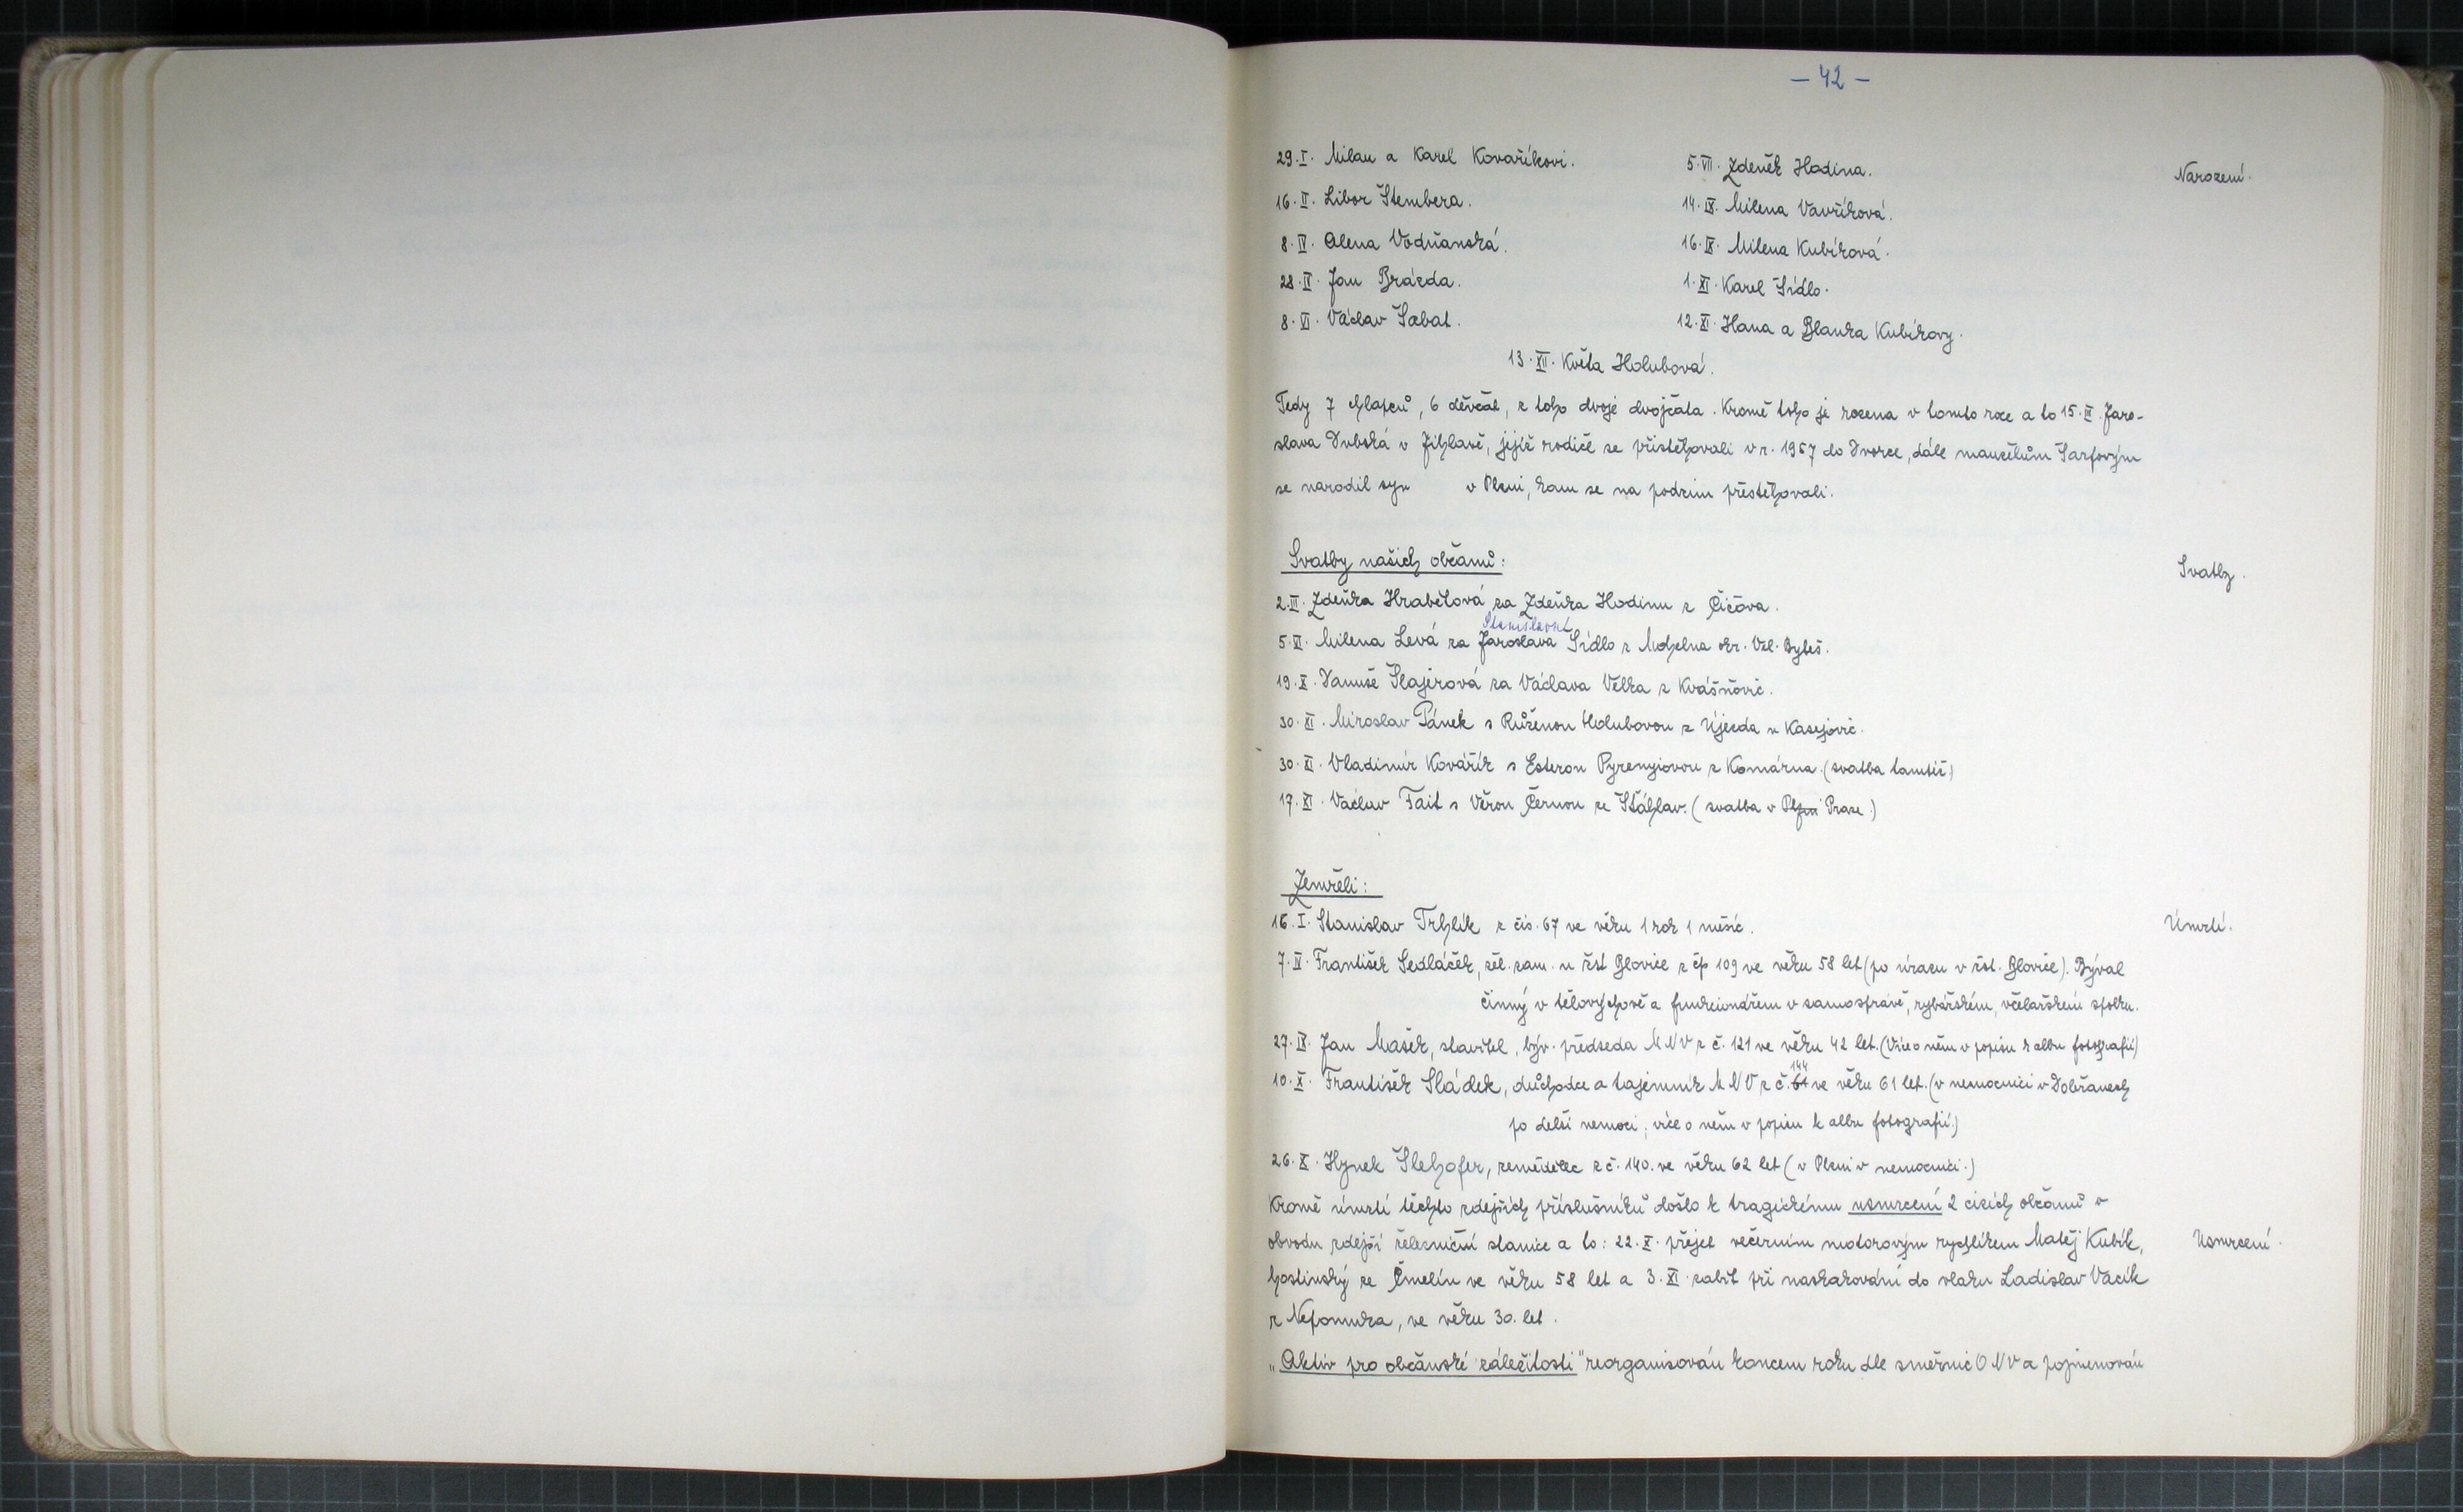 — 42 —
29. I. Milan a Karel Kovaříkovi. 5. VII. Zdeněk Hodina. Narození.
16. II. Libor Štembera. 14. IX. Milena Vavříková.
8. IV. Alena Vodňanská. 16. IX. Milena Kubíková.
28. IV. Jan Brázda. 1. XI. Karel Šídlo.
8. VI. Václav Šabat. 12. XI. Hana a Blanka Kubíkovy.
13. XII. Květa Holubová.
Tedy 7 chlapců, 6 děvčat, z toho dvoje dvojčata. Kromě toho je rozena v tomto roce a to 15. III. Jaro-
slava Dubská v Jihlavě, jejíž rodiče se přistěhovali v r. 1957 do Dvorce, dále manželům Šarfovým
se narodil syn v Plzni, kam se na podzim přestěhovali.
Svatby našich občanů: Svatby.
2. III. Zdeňka Hrabětová za Zdeňka Hodinu z Čičova.
Stanislava
5. VI. Milena Levá za Jaroslava Šídlo z Mohelna okr. Vel. Byteš.
19. X. Danuše Šlajerová za Václava Vělka z Kvášňovic.
30. XI. Miroslav Pánek s Růženou Holubovou z Újezda u Kasejovic.
30. XI. Vladimír Kovářík s Esterou Pyrenyiovou z Komárna. (svatba tamtéž)
17. XI. Václav Fait s Věrou Černou ze Šťáhlav. (svatba v Plzni Praze.)
Zemřeli:
16. I. Stanislav Trhlík z čís. 67 ve věku 1 rok 1 měsíc. Úmrtí.
7. IV. František Sedláček, žel. zam. u žst Blovice z čp 109 ve věku 58 let (po úrazu v žst. Blovice). Býval
činný v tělovýchově a funkcionářem v samosprávě, rybářském, včelařském spolku.
27. IX. Jan Mašek, stavitel, býv. předseda MNV z č. 121 ve věku 42 let. (Více o něm v popisu k albu fotografií)
144
10. X. František Sládek, důchodce a tajemník MNV z č. 61 ve věku 61 let. (v nemocnici v Dobřanech
po delší nemoci; více o něm v popisu k albu fotografií.)
26. X. Hynek Šlehofer, zemědělec z č. 140. ve věku 62 let (v Plzni v nemocnici.)
Kromě úmrtí těchto zdejších příslušníků došlo k tragickému usmrcení 2 cizích občanů v
obvodu zdejší železniční stanice a to: 22. X. přejet večerním motorovým rychlíkem Matěj Kubík, Usmrcení.
hostinský ze Čmelín ve věku 58 let a 3. XI. zabit při naskakování do vlaku Ladislav Vacík
z Nepomuka, ve věku 30. let.
„Aktiv pro občanské záležitosti" reorganisován koncem roku dle směrnic ONV a pojmenován